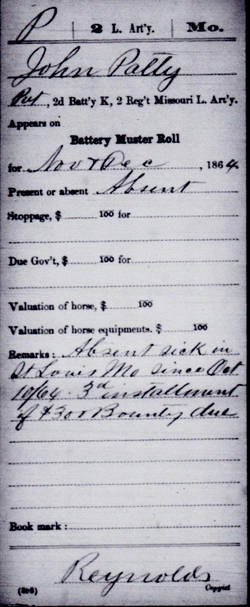 P 2 L. Art'y. Mo.
John Patty
Pvt, 2d Batt'y K, 2 Reg't Missouri L. Art'y.
Appears on
Battery Muster Roll
for Nov & Dec, 1864.
Present or absent Absent
Stoppage, $ 100 for
Due Gov't, $ 100 for
Valuation of horse, $ 100
Valuation of horse equipments. $ 100
Remarks: Absent sick in
St Louis Mo since Oct
10/64. 3d installment
of $300 Bounty due
Book mark:
Reynolds
(358) Copyist